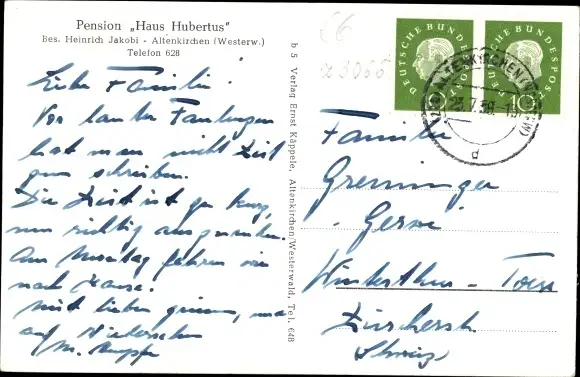 Pension „Haus Hubertus"
Bes. Heinrich Jakobi - Altenkirchen (Westerw.)
Telefon 628
Liebe Familie
Vor lauter Faulenzen
hat man nicht Zeit
zum schreiben.
Die Zeit ist zu kurz,
um richtig auszuruhen.
Am Montag fahren wir
nach Hause.
Mit lieben grüssen, und
auf Wiedersehen
b 5 Verlag Ernst Käppele, Altenkirchen/Westerwald, Tel. 648
DEUTSCHE BUNDESPOST
10
DEUTSCHE BUNDESPOST
10
ALTENKIRCHEN (WESTERW)
7.59
d
Familie
Greminger
Winterthur - Töss
Zürcherstr.
Schweiz